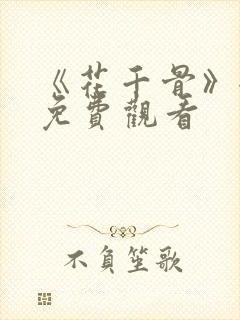 《花千骨》
免費觀看
不負笙歌